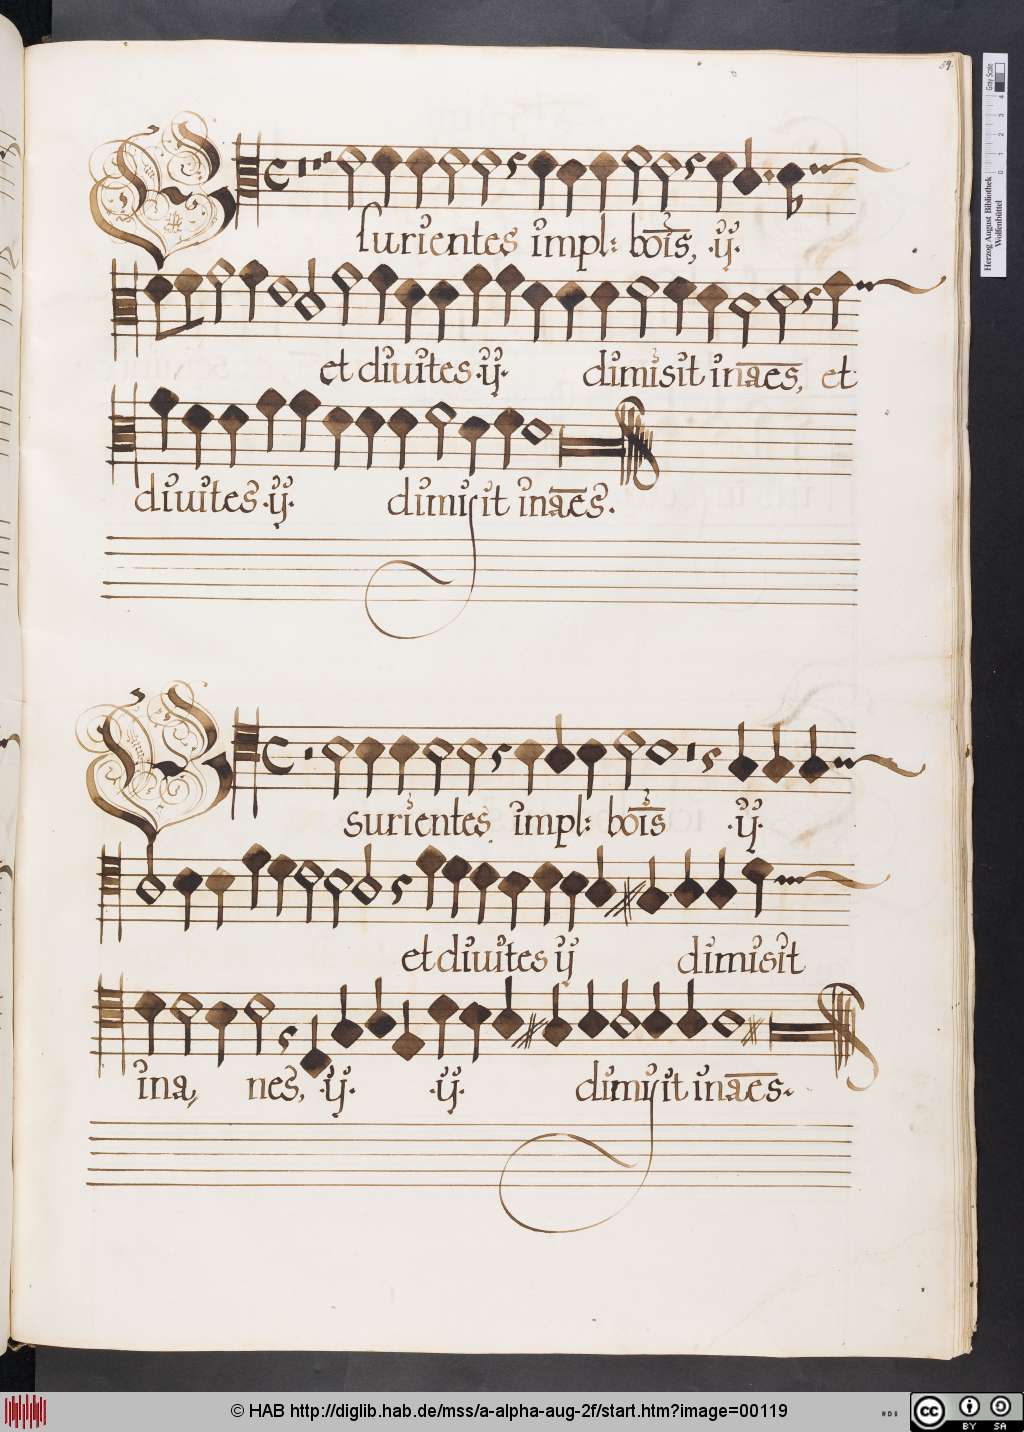 59.
Esurientes impl: bōis, .ij.
et diuites .ij. dimisit ināes, et
diuites .ij. dimisit ināes.
Esurientes impl: bōis .ij.
et diuites ij dimisit
ina, nes, .ij. .ij. dimisitināes.
Gray Scale
0 1 2 3 4
Herzog August Bibliothek
Wolfenbüttel
© HAB http://diglib.hab.de/mss/a-alpha-aug-2f/start.htm?image=00119
cc BY SA